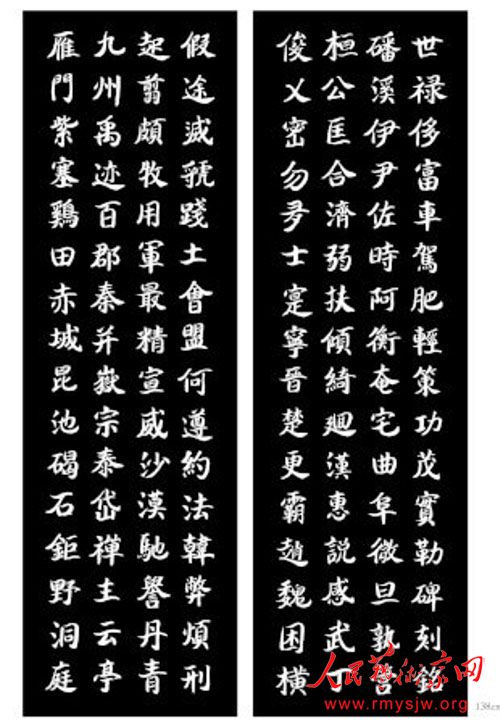 世禄侈富車駕肥輕策功茂實勒碑刻銘
磻溪伊尹佐時阿衡奄宅曲阜微旦孰營
桓公匡合濟弱扶傾綺廻漢惠説感武丁
俊乂密勿多士寔寧晉楚更霸趙魏困横
假途滅虢踐土會盟何遵約法韓弊煩刑
起翦頗牧用軍最精宣威沙漠馳譽丹青
九州禹迹百郡秦并嶽宗泰岱禪主云亭
雁門紫塞鷄田赤城昆池碣石鉅野洞庭
人民藝術家网
www.rmysjw.org